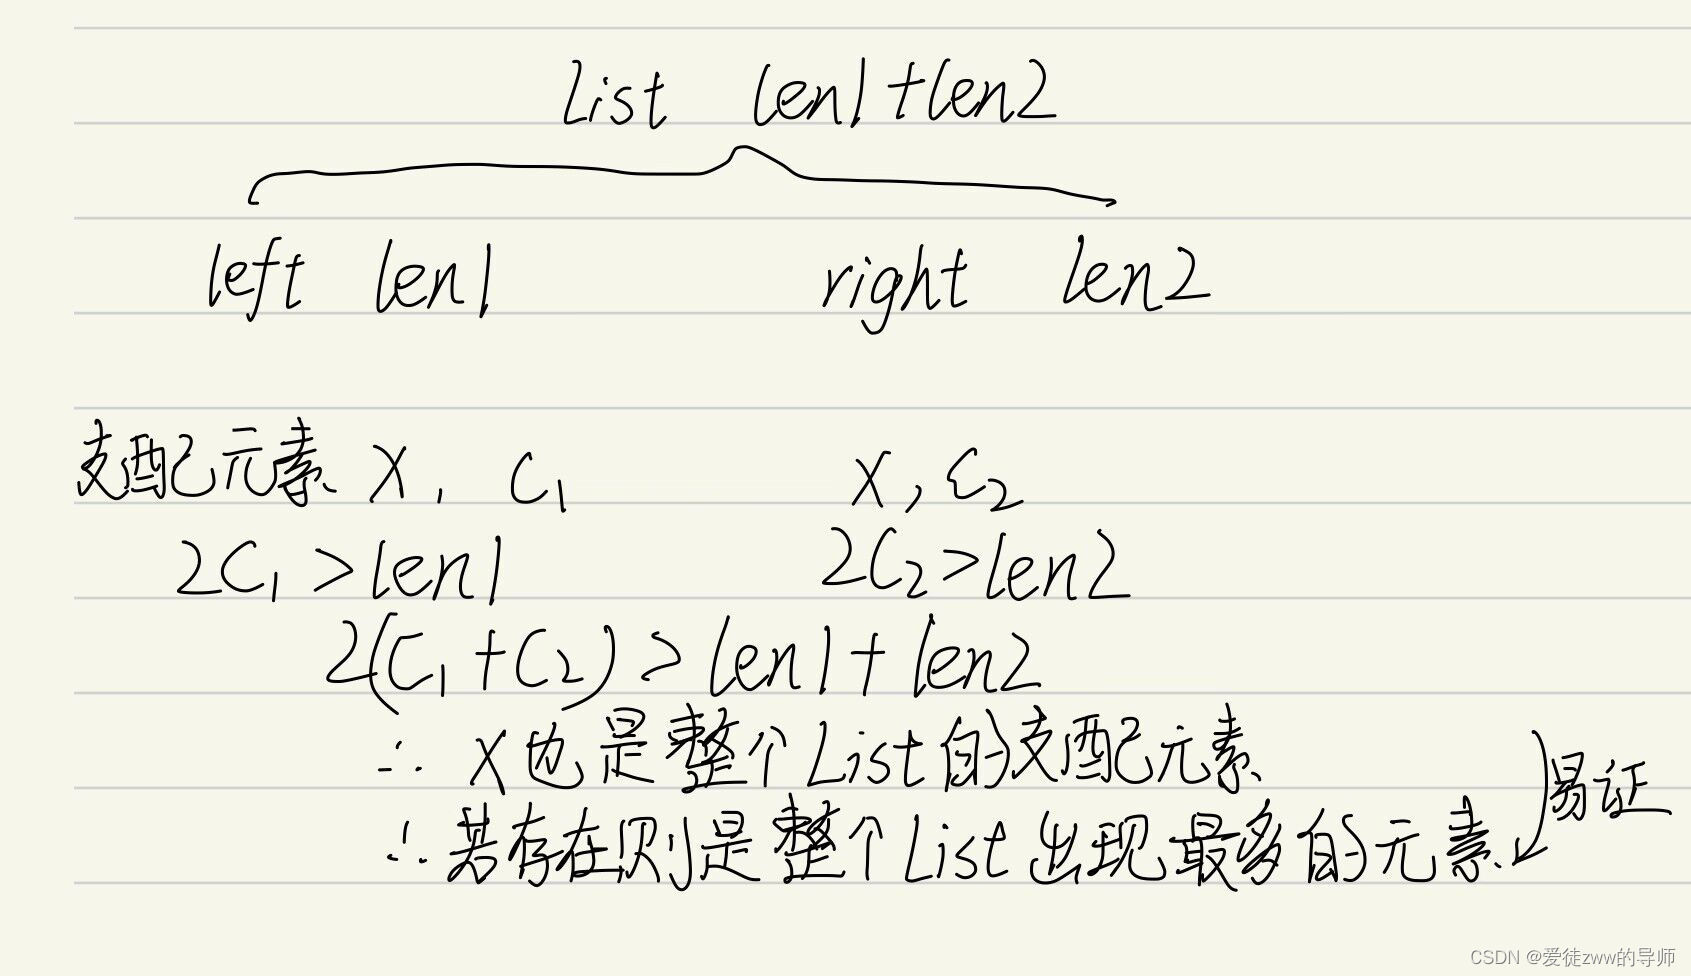 List len1+len2
left len1 right len2
支配元素 X, C₁ X, C₂
2C₁>len1 2C₂>len2
2(C₁+C₂)>len1+len2
∴ X也是整个List的支配元素
∴若存在则是整个List出现最多的元素 易证
CSDN @爱徒zww的导师